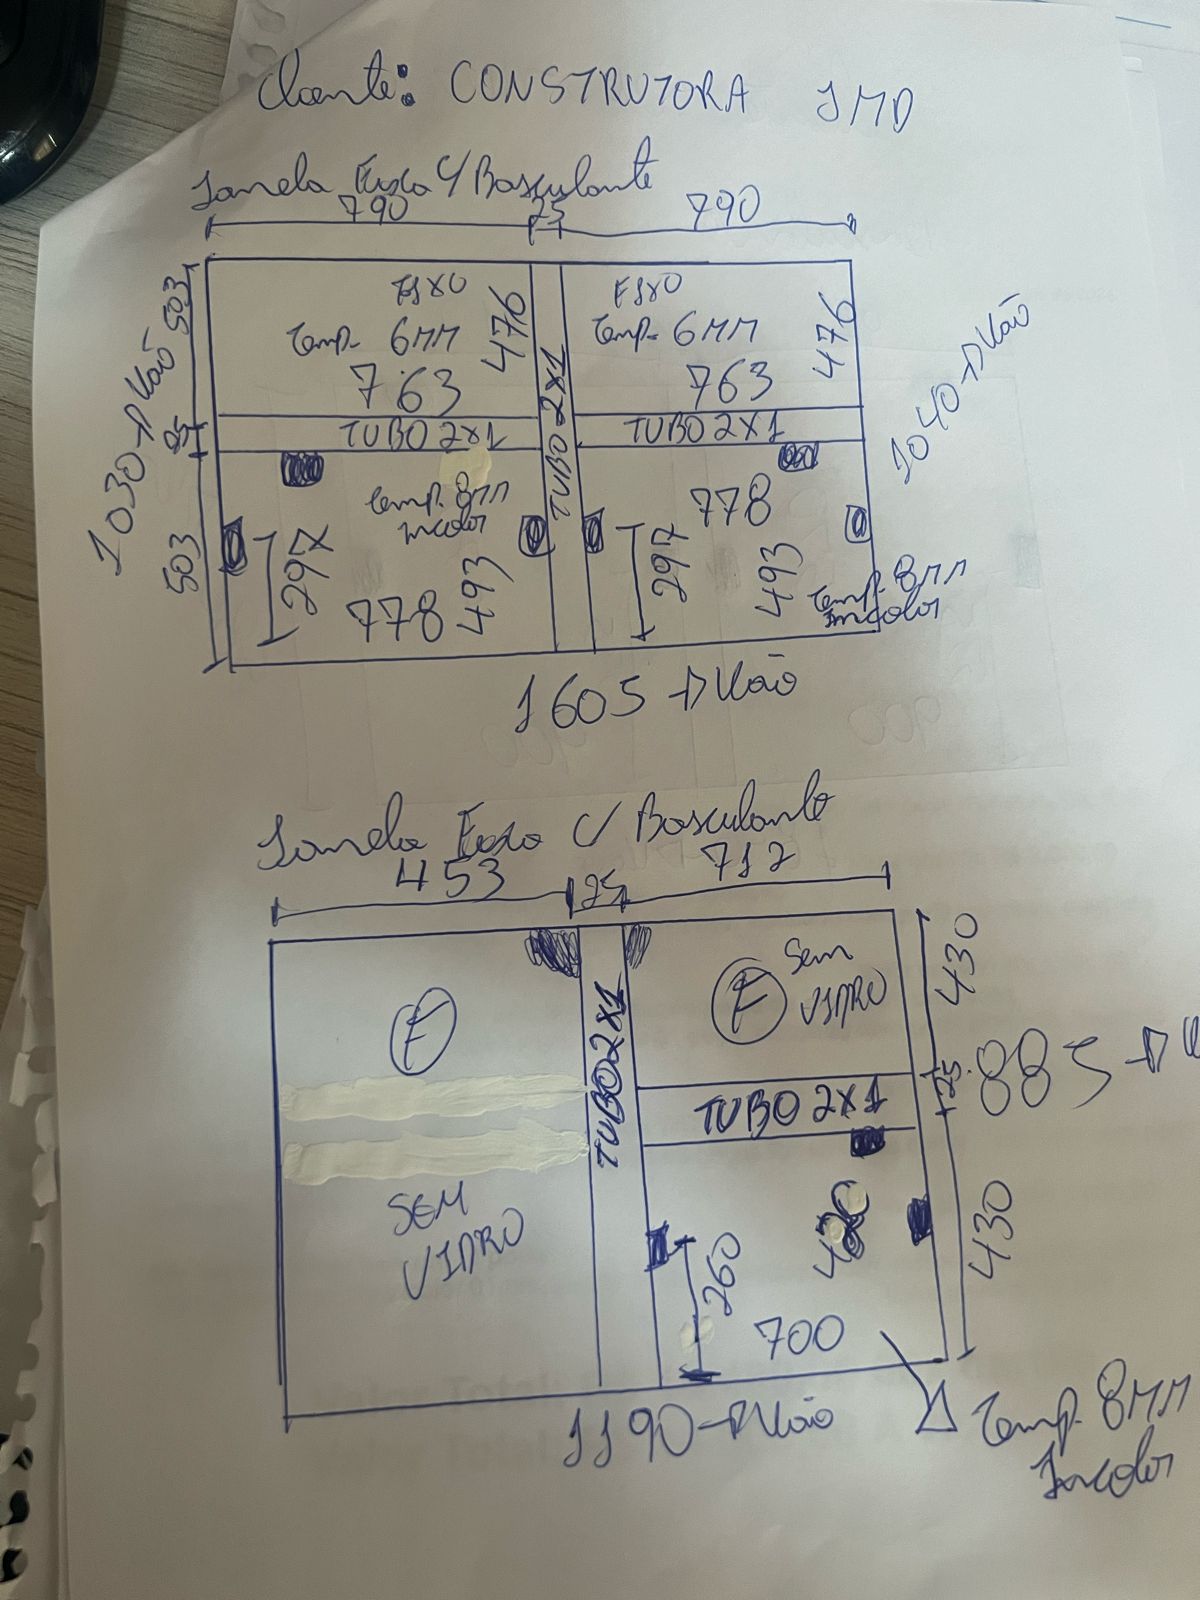 Cliente: CONSTRUTORA JMD
Janela Fixa C/ Basculante
790 25 790
FIXO FIXO
503 Temp- 6MM 476 Temp- 6MM 476
763 763
1030 → Vão 1040 → Vão
25 TUBO 2X1 TUBO 2X1 TUBO 2X1
Temp. 8MM
Incolor
778
503 297 493 297 493
778
Temp. 8MM
Incolor
1605 → Vão
Janela Fixa C/ Basculante
453 25 712
F F Sem
VIDRO
430
TUBO 2X1 TUBO 2X1 25 885 → V
SEM
VIDRO
260 420 430
700
1190 → Vão
Temp. 8MM
Incolor